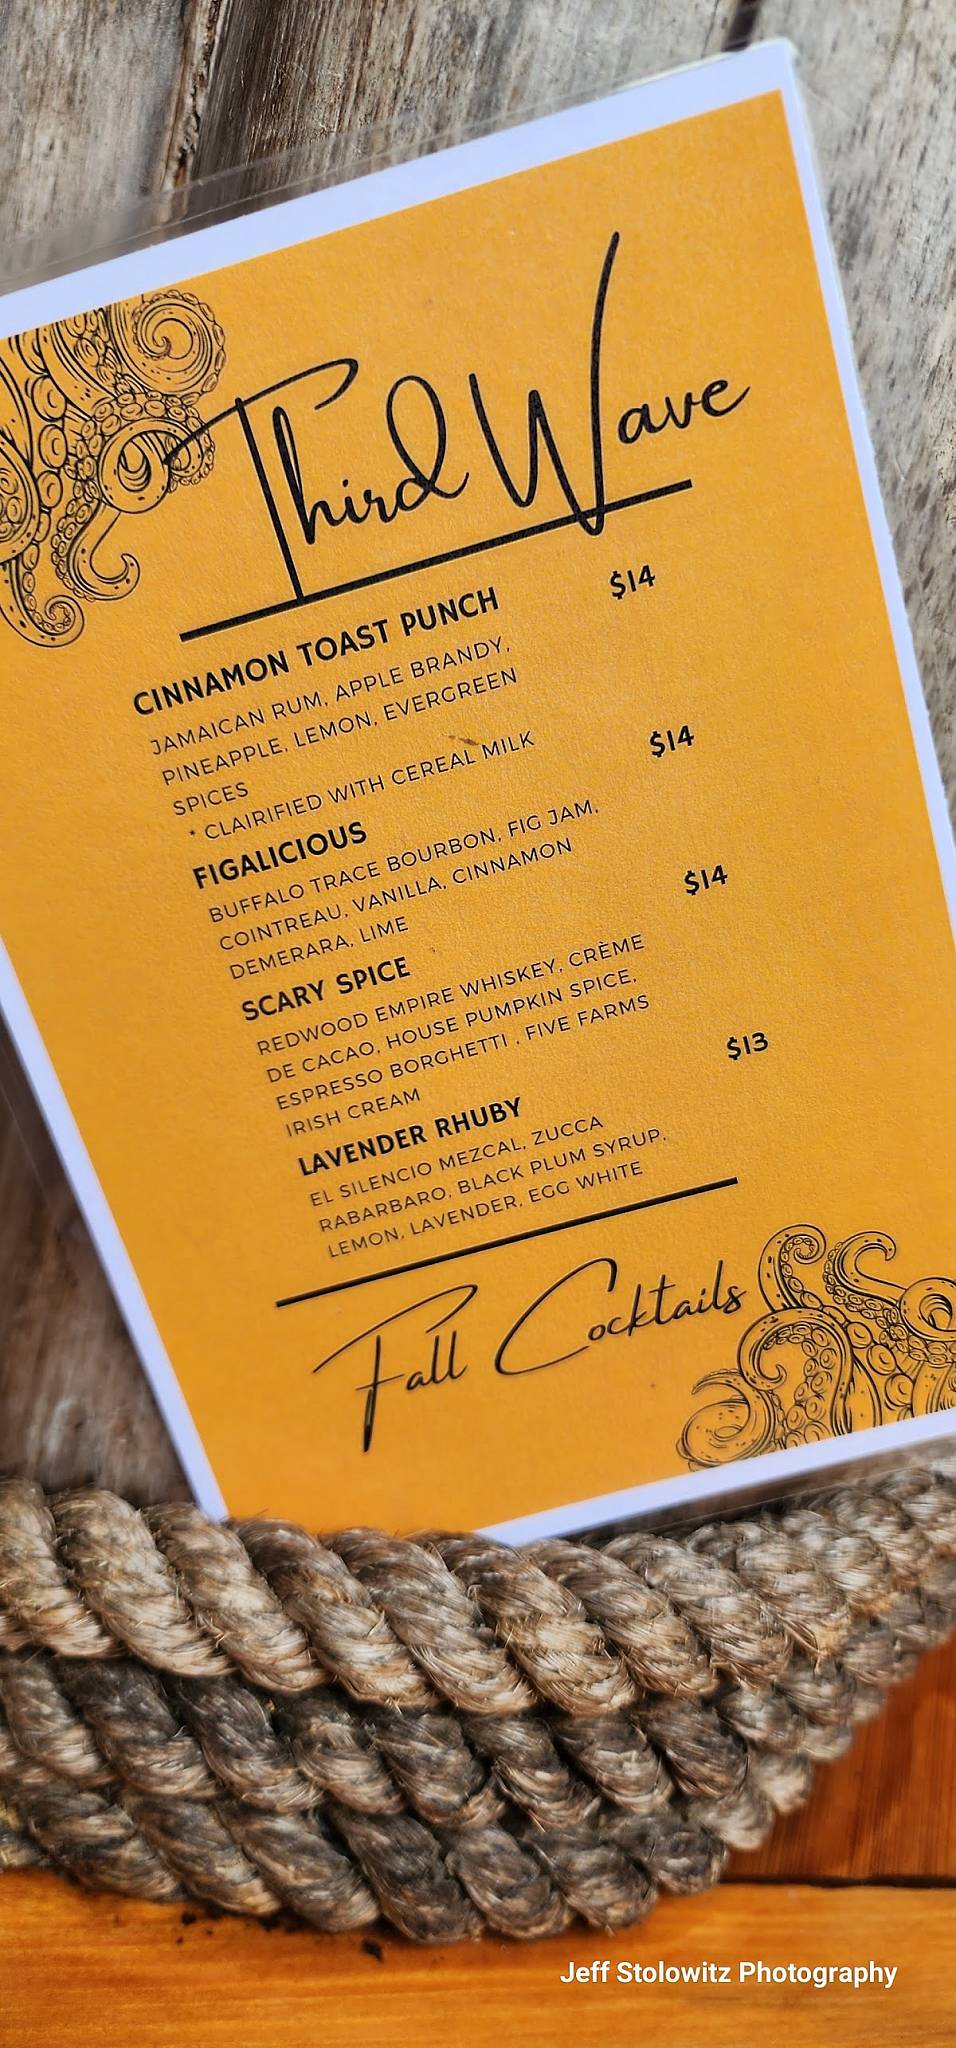 Third Wave
CINNAMON TOAST PUNCH $14
JAMAICAN RUM, APPLE BRANDY,
PINEAPPLE, LEMON, EVERGREEN
SPICES
* CLAIRIFIED WITH CEREAL MILK
FIGALICIOUS $14
BUFFALO TRACE BOURBON, FIG JAM,
COINTREAU, VANILLA, CINNAMON
DEMERARA, LIME
SCARY SPICE $14
REDWOOD EMPIRE WHISKEY, CRÈME
DE CACAO, HOUSE PUMPKIN SPICE,
ESPRESSO BORGHETTI , FIVE FARMS
IRISH CREAM
LAVENDER RHUBY $13
EL SILENCIO MEZCAL, ZUCCA
RABARBARO, BLACK PLUM SYRUP,
LEMON, LAVENDER, EGG WHITE
Fall Cocktails
Jeff Stolowitz Photography